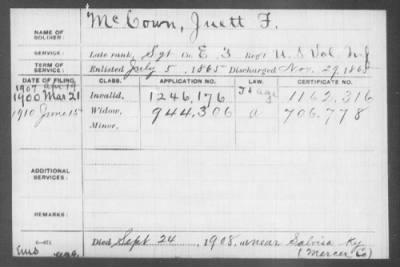 NAME OF SOLDIER: McCown, Juett F.
SERVICE: Late rank, Sgt Co. E, 3 Reg't U.S. Vol. Inf
TERM OF SERVICE: Enlisted July 5, 1865 Discharged Nov. 29, 1865
DATE OF FILING. CLASS. APPLICATION NO. LAW. CERTIFICATE NO.
1907 Apr 19
1900 Mar 21 Invalid, 1246,176 1162,316
1910 June 15 Widow, 944,306 a 706,778
Minor,
ADDITIONAL SERVICES:
REMARKS:
Died Sept 24, 1908, near Salvisa Ky
(Mercer Co)